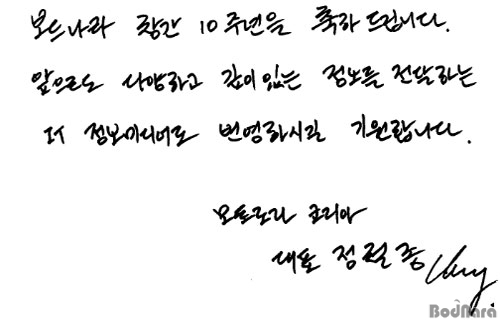 보드나라 창간 10주년을 축하 드립니다.
앞으로도 다양하고 깊이있는 정보를 전달하는
IT 정보미디어로 번영하시길 기원합니다.
모토로라 코리아
대표 정철종
BodNara